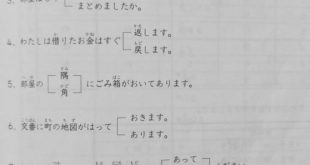 まとめましたか。
4. わたしは借りたお金はすぐ
返します。
戻します。
5. 部屋の
隅
角
にごみ箱がおいてあります。
6. 交番に町の地図がはって
おきます。
あります。
あって